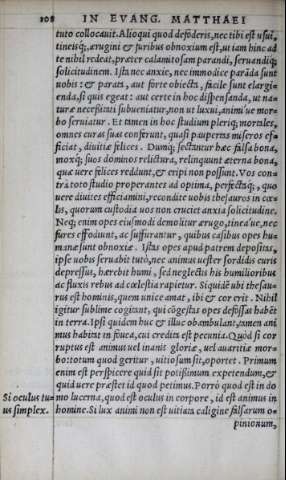 108 IN EVANG. MATTHÆI
tuto collocauit. Alioqui quod defoderis, nec tibi est usui,
tineisq;, ærugini & furibus obnoxium est, ut iam hinc ad
te nihil redeat, præter calamitosam parandi, seruandiq;
solicitudinem. Ista nec anxie, nec immodice parāda sunt
uobis: & parata, aut forte obiecta, facile sunt elargi=
enda, si quis egeat: aut certe in hoc dispensanda, ut na=
turæ necessitati subueniatur, non ut luxui, animi ue mor=
bo seruiatur. Et tamen in hoc studium pleriq; mortales,
omnes curas suas conferunt, quasi paupertas miseros ef=
ficiat, diuitiæ felices. Dumq; sectantur hæc falsa bona,
moxq; suos dominos relictura, relinquunt æterna bona,
quæ uere felices reddunt, & eripi non possunt. Vos con=
tra toto studio properantes ad optima, perfectaq;, quo
uere diuites efficiamini, recondite uobis thesauros in cœ=
lis, quorum custodia uos non cruciet anxia solicitudine.
Neq; enim opes eiusmodi demolitur ærugo, tinea'ue, nec
fures effodiunt, ac suffurantur, quibus casibus opes hu=
manæ sunt obnoxiæ. Istas opes apud patrem depositas,
ipse uobis seruabit tutò, nec animus uester sordidis curis
depressus, hærebit humi, sed neglectis his humilioribus
ac fluxis rebus ad cœlestia rapietur. Siquidē ubi thesau=
rus est hominis, quem unice amat, ibi & cor erit. Nihil
igitur sublime cogitant, qui cōgestas opes defossas habēt
in terra. Ipsi quidem huc & illuc obambulant, tamen ani
mus habitat in fouea, cui credita est pecunia. Quòd si cor
ruptus est animus uel inanis gloriæ, uel auaritiæ mor=
bo: totum quod geritur, uitiosum sit, oportet. Primum
enim est perspicere quid sit potissimum expetendum, &
quid uere præstet id quod petimus. Porrò quod est in do
Si oculus tu= mo lucerna, quod est oculus in corpore, id est animus in
us simplex. homine. Si lux animi non est uitiata caligine falsarum o=
pinionum,